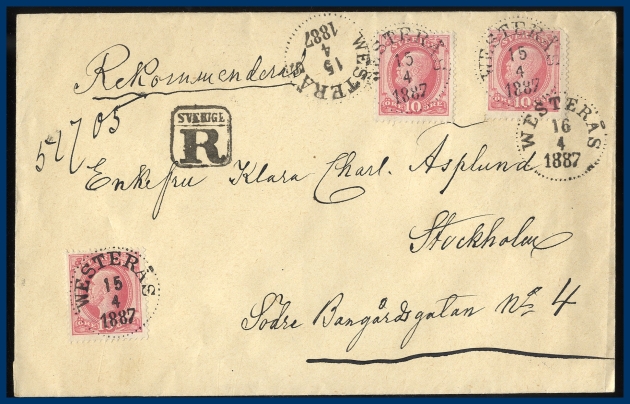 WESTERÅS
15
4
1887
WESTERÅS
15
4
1887
10 ÖRE
WESTERÅS
15
4
1887
ÖRE 10
Rekommenderas
WESTERÅS
16
4
1887
SVERIGE
R
Enkefru Klara Charl. Asplund
Stockholm
WESTERÅS
15
4
1887
Södre Bangårdsgatan No 4